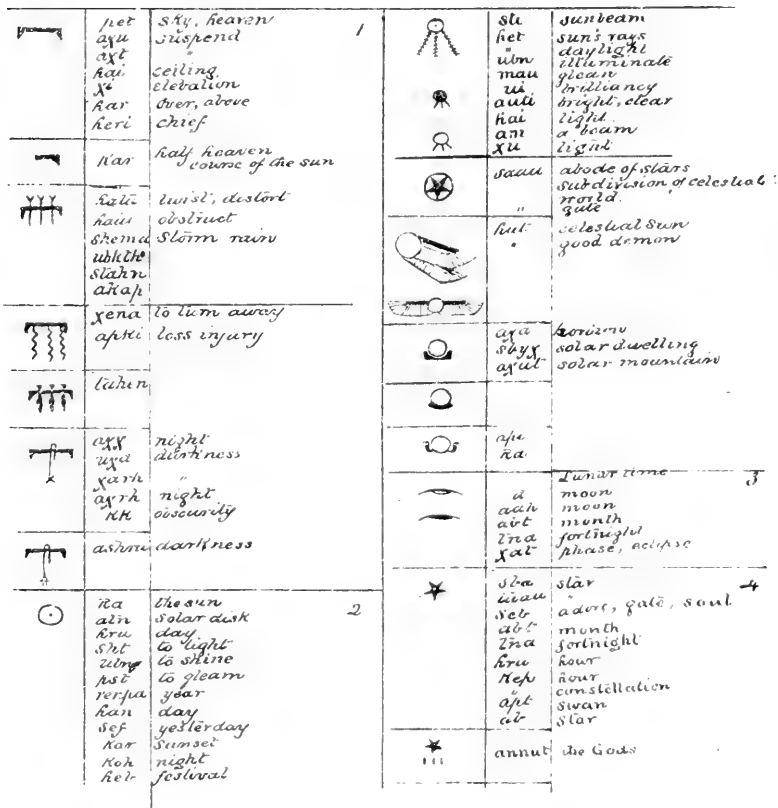 pet sky, heaven 1
axu suspend
axt "
hai ceiling
xi elevation
har over, above
heri chief
Kar half heaven
course of the sun
hatu twist, distort
haiu obstruct
shema Storm rain
ubhth
Stahn
akap
xena to turn away
apki loss injury
tahen
axx night
uxa darkness
xarh "
axrh night
KK obscurity
ashru darkness
Ra the sun 2
atn solar disk
hru day
sht to light
ubn to shine
pst to gleam
renpa year
han day
sef yesterday
Kar sunset
Koh night
heb festival
sti sunbeam
het sun's rays
" daylight
ubn illuminate
mau glean
ui brilliancy
auti bright, clear
hai light
am a beam
xu light
sauu abode of stars
subdivision of celestial
world.
" gate
hut celestial Sun
" good demon
axa horizon
sbyx solar dwelling
axut solar mountain
apu
Ra
Lunar time 3
a moon
aah moon
abt month
tna fortnight
xat phase, eclipse
sba star 4
uau "
Seb adore, gate, soul
abt month
tna fortnight
hru hour
Kep hour
" constellation
apt swan
ab star
annut the Gods